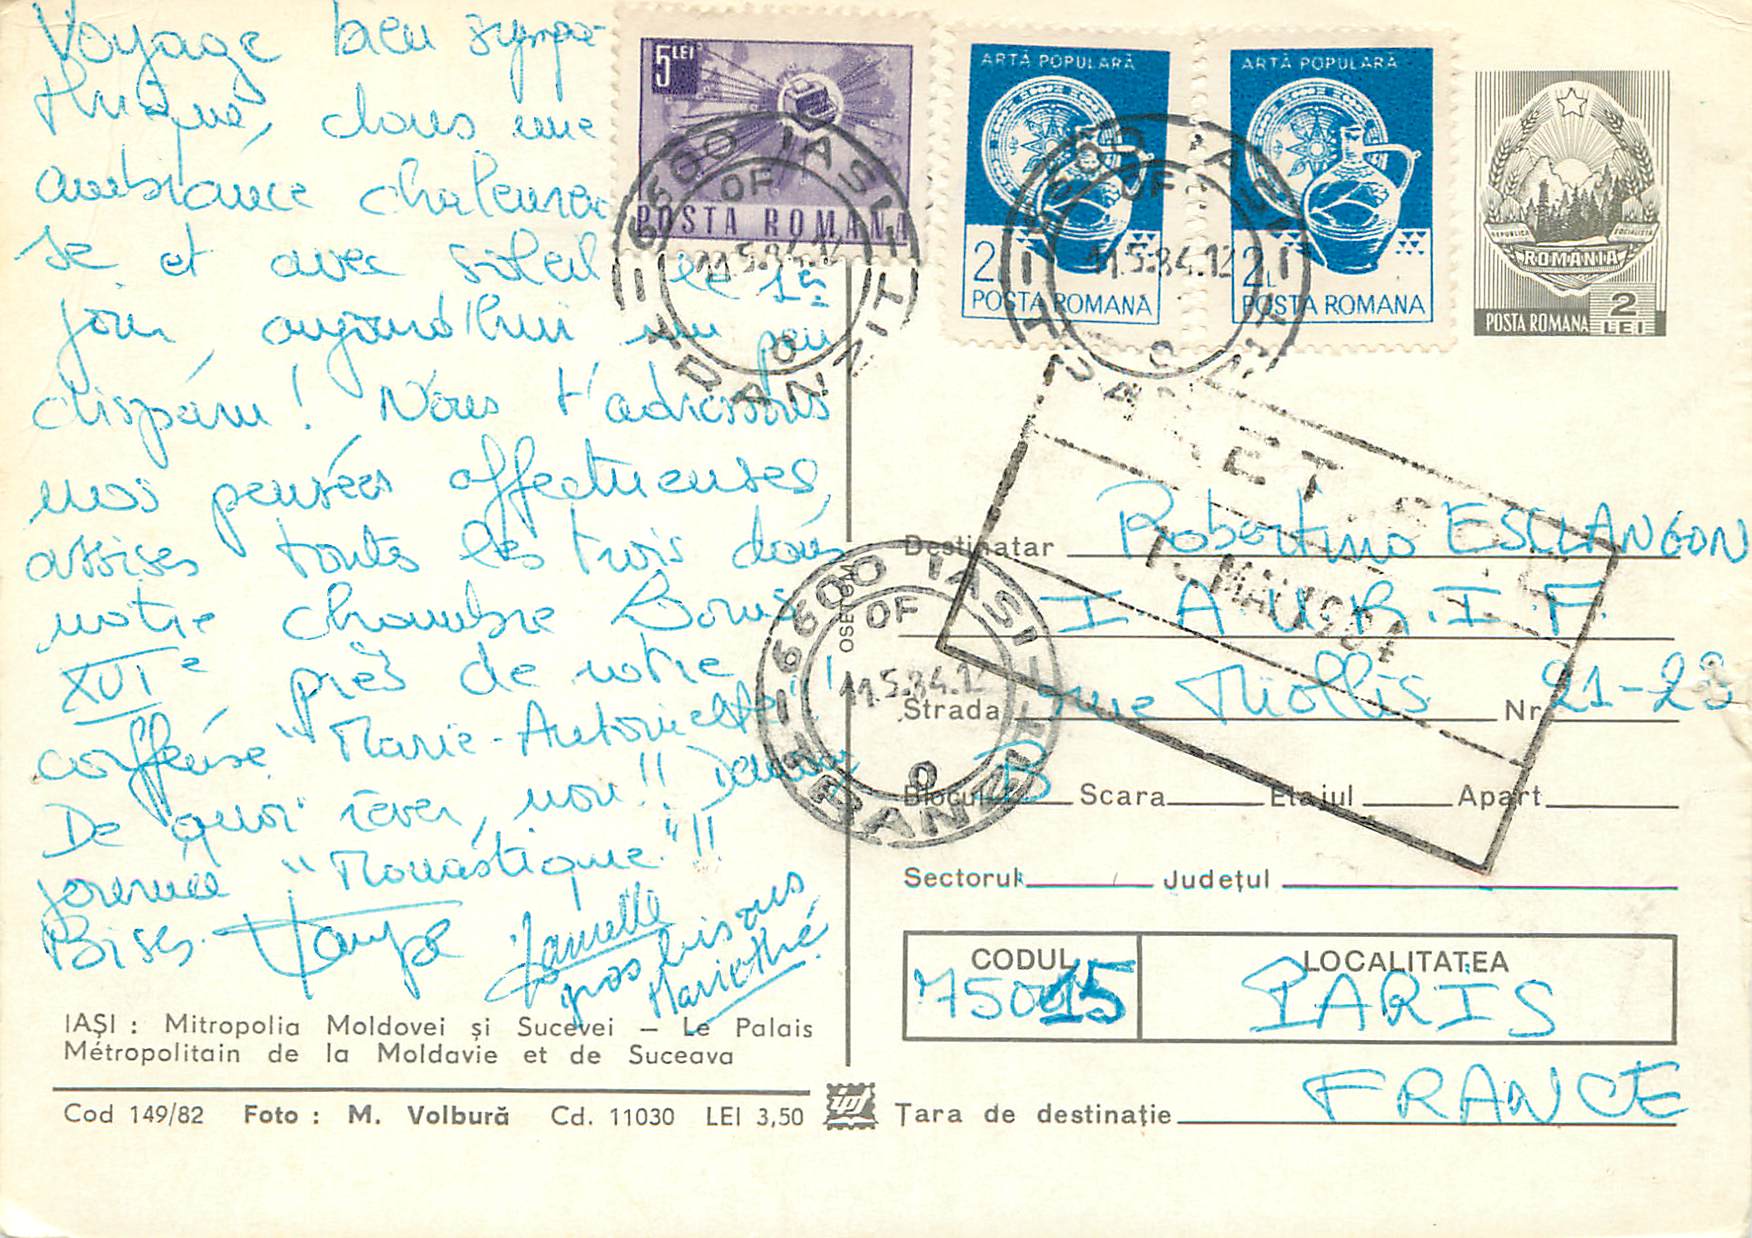 Voyage bien sympa-
thique, dans une
ambiance chaleureu-
se et avec soleil le 1er
jour, aujourd'hui un peu
disparu ! Nous t'adressons
nos pensées affectueuses,
assises toutes les trois dans
notre chambre Louis
XVIe près de notre
coiffeuse "Marie-Antoinette" !
De quoi rêver, non !! Demain
journée "Monastique" !!
Bises.
Danielle
gros bisous
Mariethé
IAȘI : Mitropolia Moldovei și Sucevei – Le Palais
Métropolitain de la Moldavie et de Suceava
Cod 149/82 Foto : M. Volbură Cd. 11030 LEI 3,50
5 LEI
POSTA ROMANA
ARTĂ POPULARĂ
2L
POSTA ROMANA
ARTĂ POPULARĂ
2L
POSTA ROMANA
REPUBLICA SOCIALISTA
ROMÂNIA
POSTA ROMANA 2 LEI
6600 IASI
OF
11.5.84.12
TRANZIT
6600 IASI
OF
11.5.84.12
TRANZIT
6600 IASI
OF
11.5.84.12
TRANZIT
MAI 1984
Destinatar Robertino ESCLANGON
I A U R. I. F.
Strada rue Miollis Nr. 21-23
Blocul B Scara Etajul Apart
Sectorul Județul
CODUL 75015
LOCALITATEA PARIS
Țara de destinație FRANCE